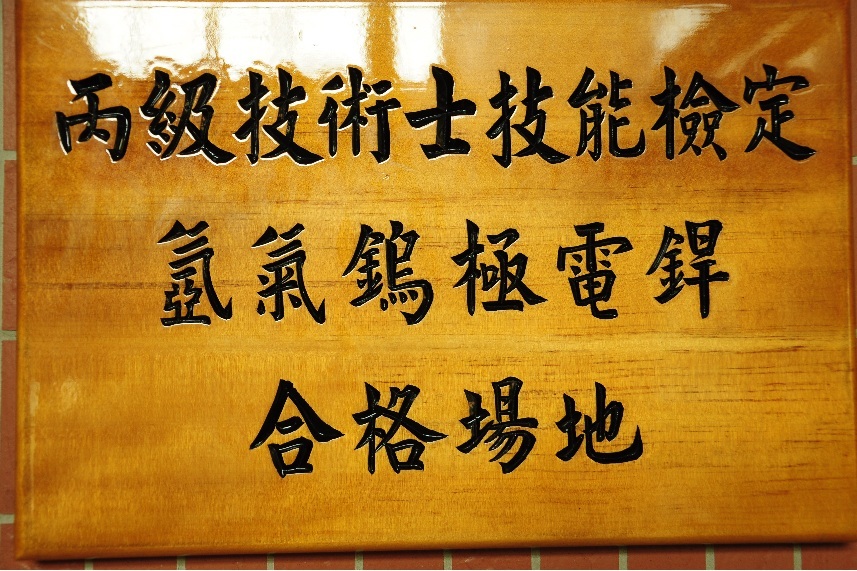 丙級技術士技能檢定
氬氣鎢極電銲
合格場地